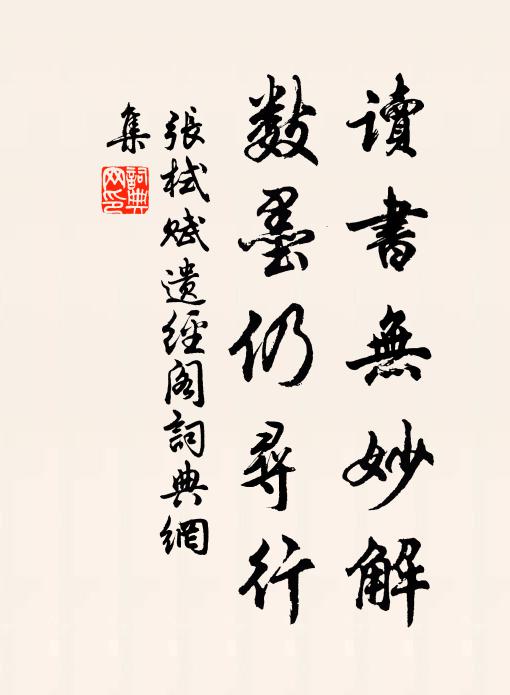 讀書無妙解
數墨仍尋行
張栻賦遺經閣詞典網
集
詞典
网印